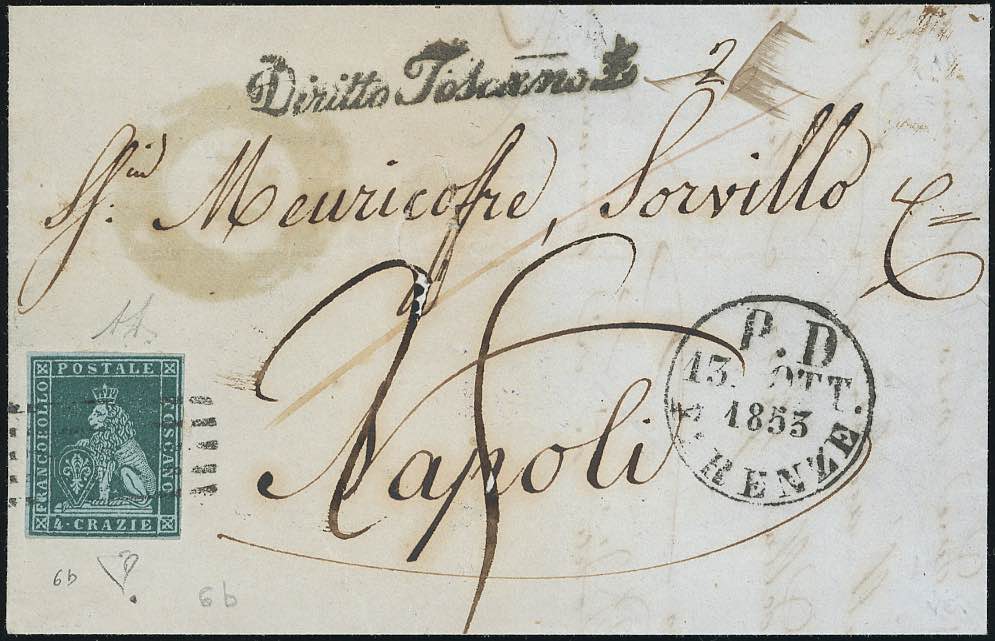 Diritto Toscano
2
Sig.ri Meuricofre, Sorvillo
26
Napoli
P.D
13. OTT.
1853
FIRENZE
POSTALE
FRANCOBOLLO
TOSCANO
4 · CRAZIE
6b
6b